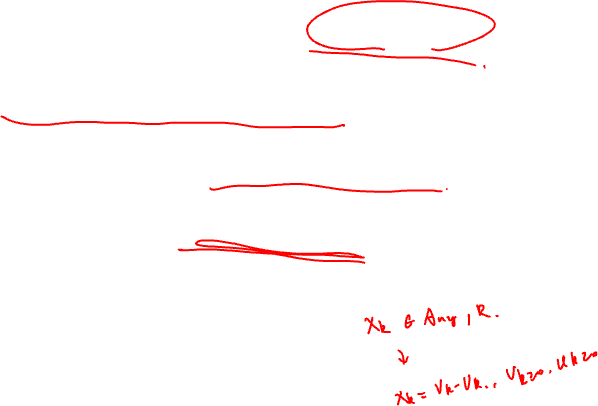 xk ∈ Any, R.
↓
xk = Vk - Uk., Vk≥0, Uk≥0